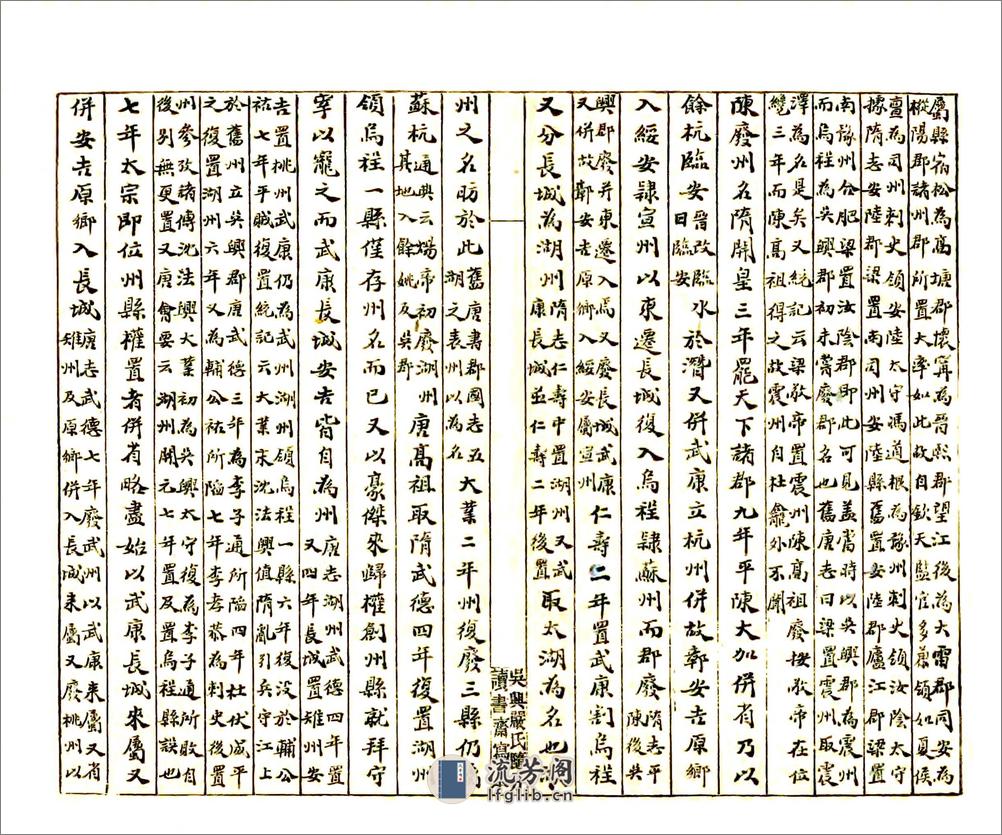 屬縣宿松為高塘郡壞寧為晉熙郡望江後為大雷郡同安為
樅陽郡諸州郡所置大率如此故自欽天監官多兼領如夏侯
亶為司州刺史領安陸太守馮道根為豫州刺史領汝陰太守
據隋志安陸郡梁置南司州安陸縣舊置安陸郡廬江郡梁置
南豫州合肥梁置汝陰郡即此可見蓋當時以吳興郡為震州
而烏程為吳興郡初未嘗廢郡名也舊唐志曰梁置震州取震
澤為名是矣又統記云梁敬帝置震州陳高祖廢按敬帝在位
纔三年而陳高祖得之故震州自杜龕外不聞
陳廢州名隋開皇三年罷天下諸郡九年平陳大加併省乃以
餘杭臨安晉改臨曰臨安水於潛又併武康立杭州併故鄣安吉原鄉
入綏安隸宣州以東遷長城復入烏程隸蘇州而郡廢隋志平陳後吳
興郡廢并東遷入焉又廢長城武康又併故鄣安吉原鄉入綏安屬宣州仁壽二年置武康割烏程
又分長城為湖州隋志仁壽中置湖州又武康長城並仁壽二年後置取太湖為名也
吳興嚴氏隨
讀書齋寫
州之名昉於此舊唐書郡國志五湖之表州以為名大業二年州復廢三縣仍為
蘇杭通典云煬帝初廢湖州其地入餘姚及吳郡唐高祖取隋武德四年復置湖州
領烏程一縣僅存州名而已又以豪傑來歸權創州縣就拜守
宰以寵之而武康長城安吉皆自為州唐志湖州武德四年置又四年長城置雉州安
吉置桃州武康仍為武州湖州領烏程一縣六年復沒於輔公
祏七年平賊復置統記云大業末沈法興值隋亂引兵守江上
於舊州立吳興郡唐武德三年為李子通所陷四年杜伏威平
之復置湖州六年又為輔公祏所陷七年李孝恭為刺史後
州參攷諸傳沈法興大業初為吳興太守復為李子通所敗自
後別無更置又唐會要云湖州開元七年置及置烏程縣誤也
七年太宗即位州縣權置者併省略盡始以武康長城來屬又
併安吉原鄉入長城唐志武德七年廢武州以武康來屬又省雉州及原鄉併入長城來屬又廢桃州以
流芳阁
lfglib.cn